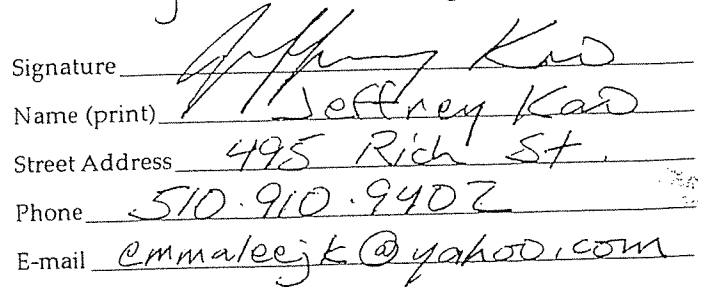 Signature Jeffrey Kao
Name (print) Jeffrey Kao
Street Address 495 Rich St.
Phone 510.910.9402
E-mail emmaleejk@yahoo.com